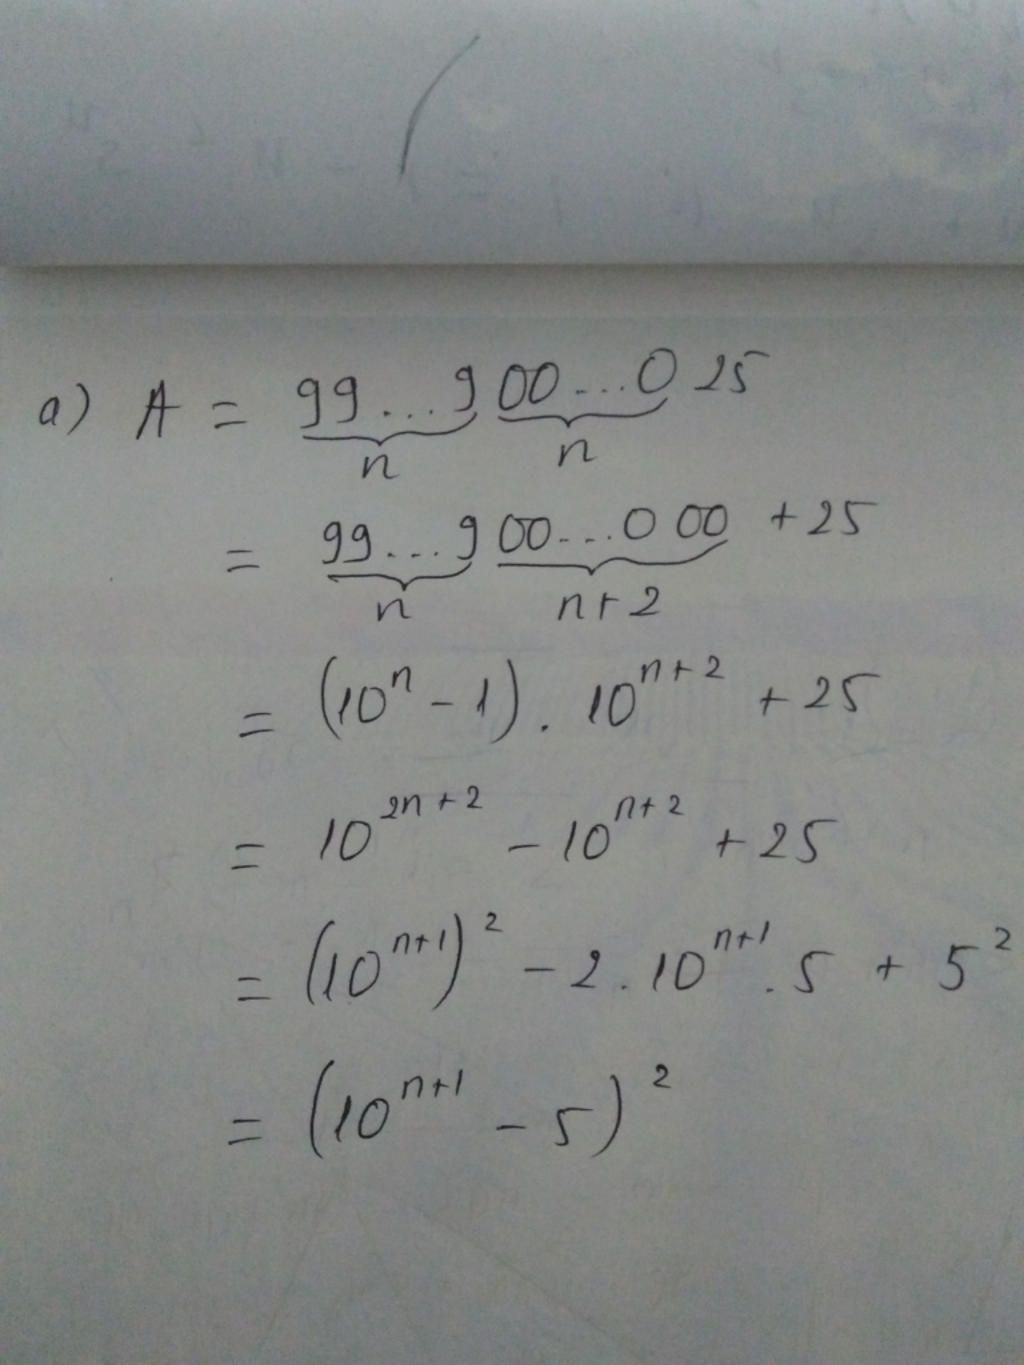 a) A = 99...9 00...0 25
n n
= 99...9 00...0 00 + 25
n n+2
= (10ⁿ - 1) . 10ⁿ⁺² + 25
= 10²ⁿ⁺² - 10ⁿ⁺² + 25
= (10ⁿ⁺¹)² - 2 . 10ⁿ⁺¹ . 5 + 5²
= (10ⁿ⁺¹ - 5)²